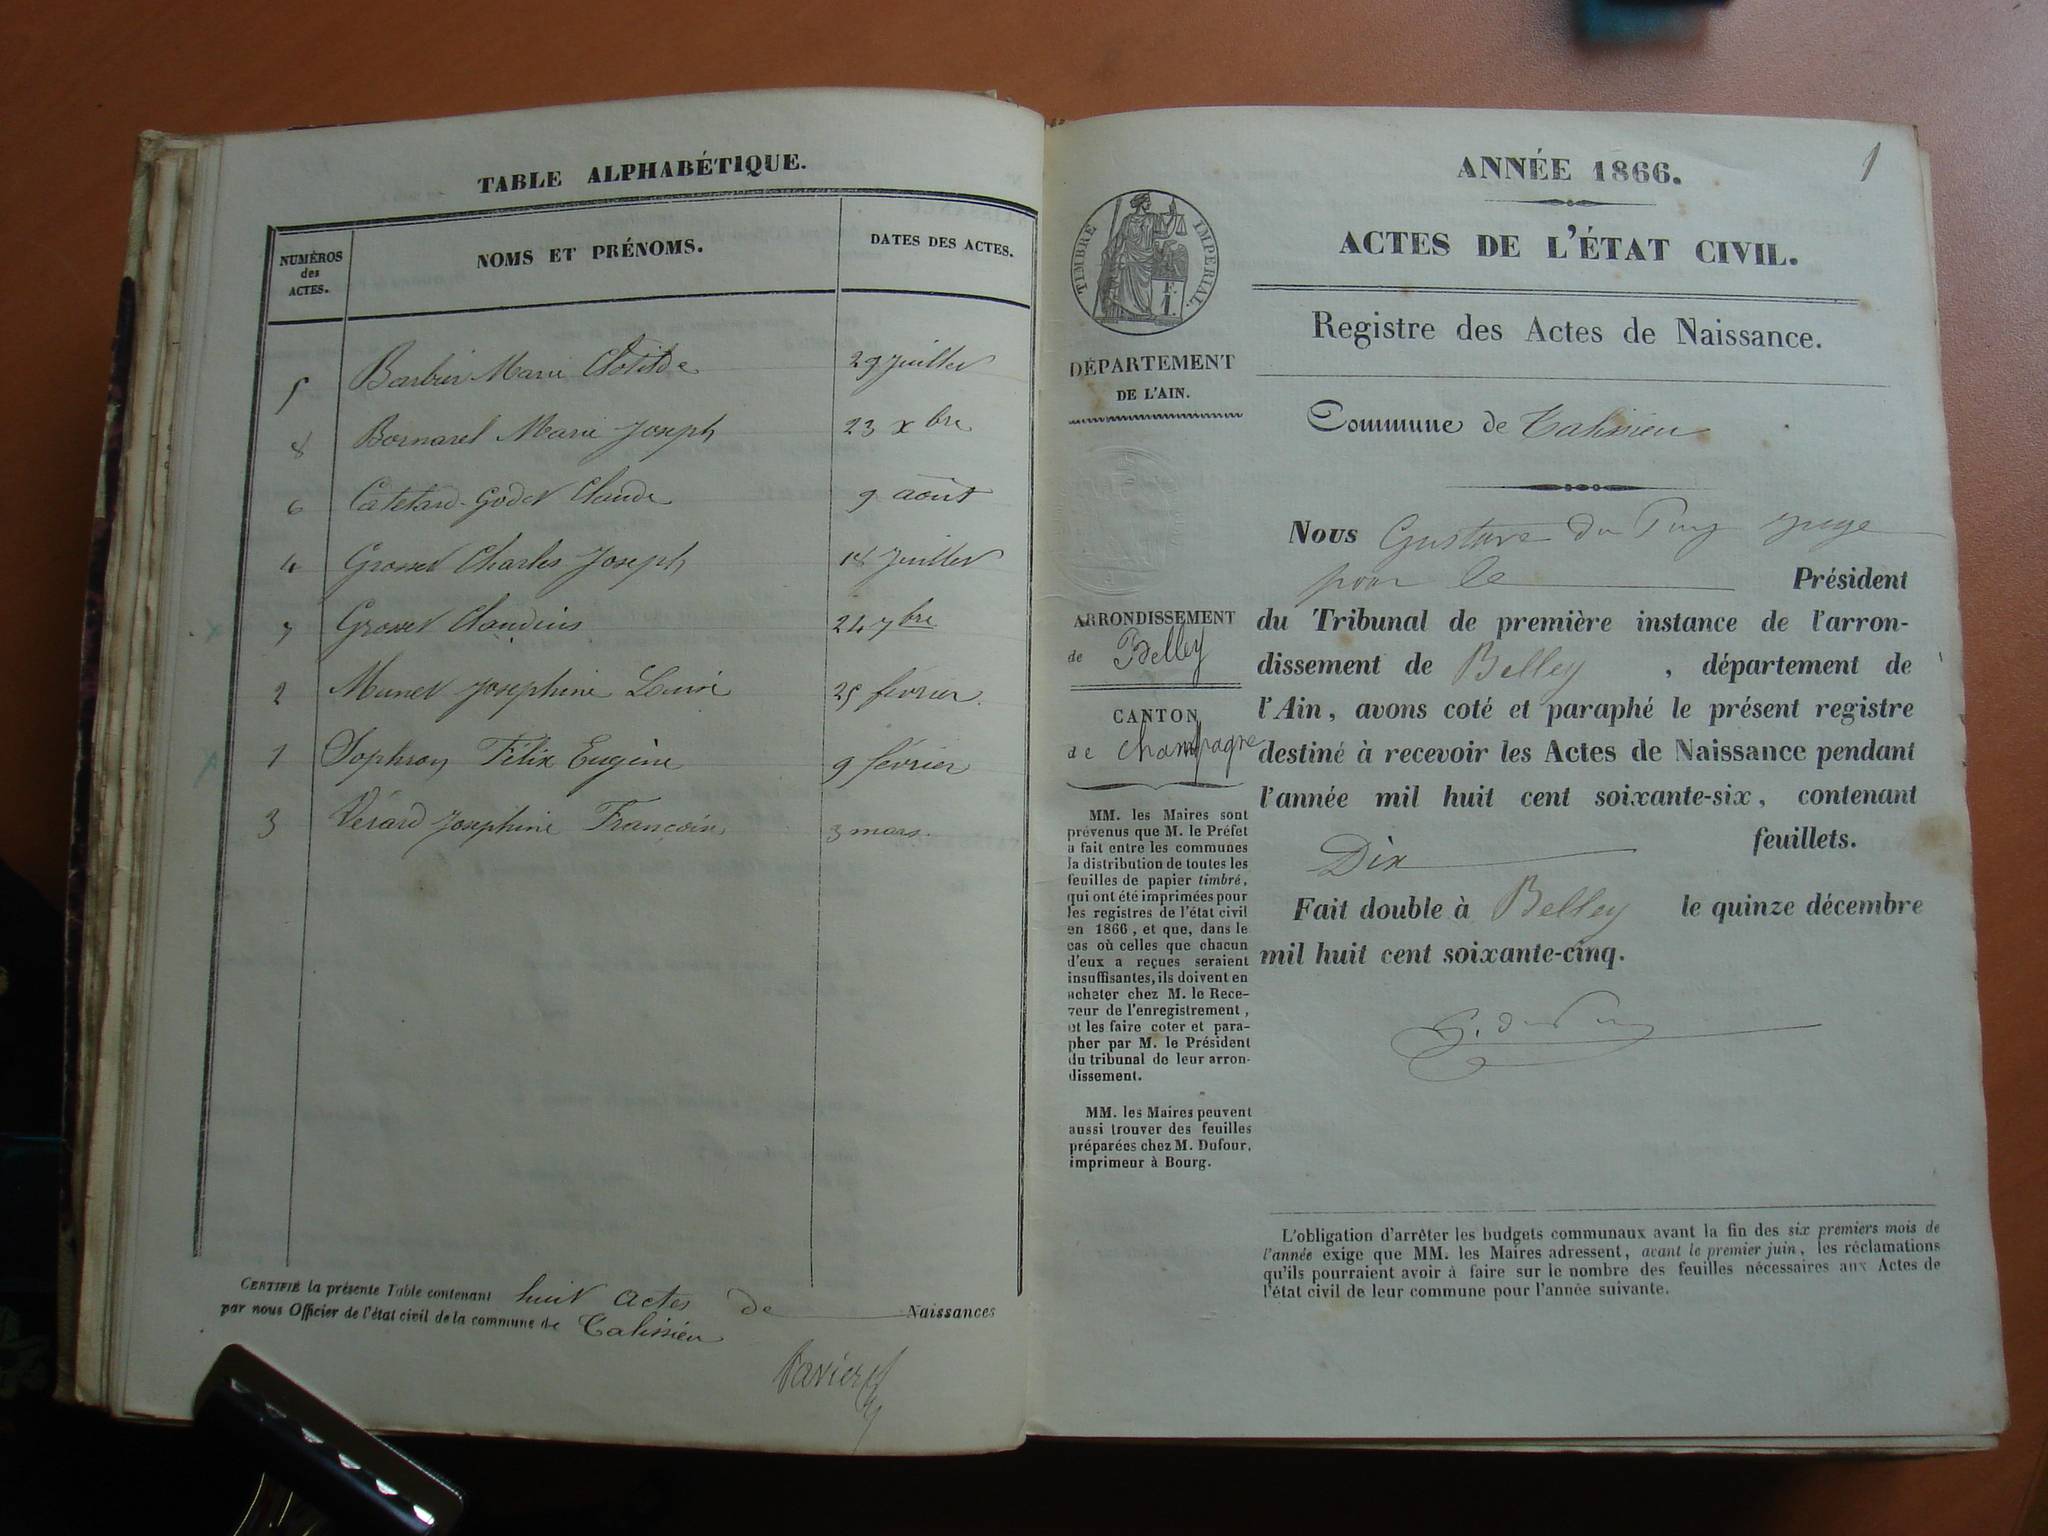 TABLE ALPHABÉTIQUE.
NUMÉROS des ACTES. NOMS ET PRÉNOMS. DATES DES ACTES.
5 Barbier Marie Clotilde 29 Juillet
8 Bornarel Marie Joseph 23 xbre
6 Catelard-Godet Claude 9 août
4 Grosset Charles Joseph 18 Juillet
7 Grosset Claudius 24 7bre
2 Munet Josephine Louise 25 fevrier.
1 Félix Eugène 9 février
3 Vérard Josephine Françoise 3 mars.
CERTIFIÉ la présente Table contenant huit actes de Naissances
par nous Officier de l'état civil de la commune de Talissieu
1
ANNÉE 1866.
ACTES DE L'ÉTAT CIVIL.
Registre des Actes de Naissance.
TIMBRE IMPÉRIAL.
DÉPARTEMENT
DE L'AIN.
ARRONDISSEMENT
de Belley
CANTON
de Champagne
MM. les Maires sont
prévenus que M. le Préfet
a fait entre les communes
la distribution de toutes les
feuilles de papier timbré,
qui ont été imprimées pour
les registres de l'état civil
en 1866, et que, dans le
cas où celles que chacun
d'eux a reçues seraient
insuffisantes, ils doivent en
acheter chez M. le Rece-
veur de l'enregistrement,
et les faire coter et para-
pher par M. le Président
du tribunal de leur arron-
dissement.
MM. les Maires peuvent
aussi trouver des feuilles
préparées chez M. Dufour,
imprimeur à Bourg.
Commune de Talissieu
Nous Gustave du Puy juge
pour le Président
du Tribunal de première instance de l'arron-
dissement de Belley, département de
l'Ain, avons coté et paraphé le présent registre
destiné à recevoir les Actes de Naissance pendant
l'année mil huit cent soixante-six, contenant
Dix feuillets.
Fait double à Belley le quinze décembre
mil huit cent soixante-cinq.
G. du Puy
L'obligation d'arrêter les budgets communaux avant la fin des six premiers mois de
l'année exige que MM. les Maires adressent, avant le premier juin, les réclamations
qu'ils pourraient avoir à faire sur le nombre des feuilles nécessaires aux Actes de
l'état civil de leur commune pour l'année suivante.